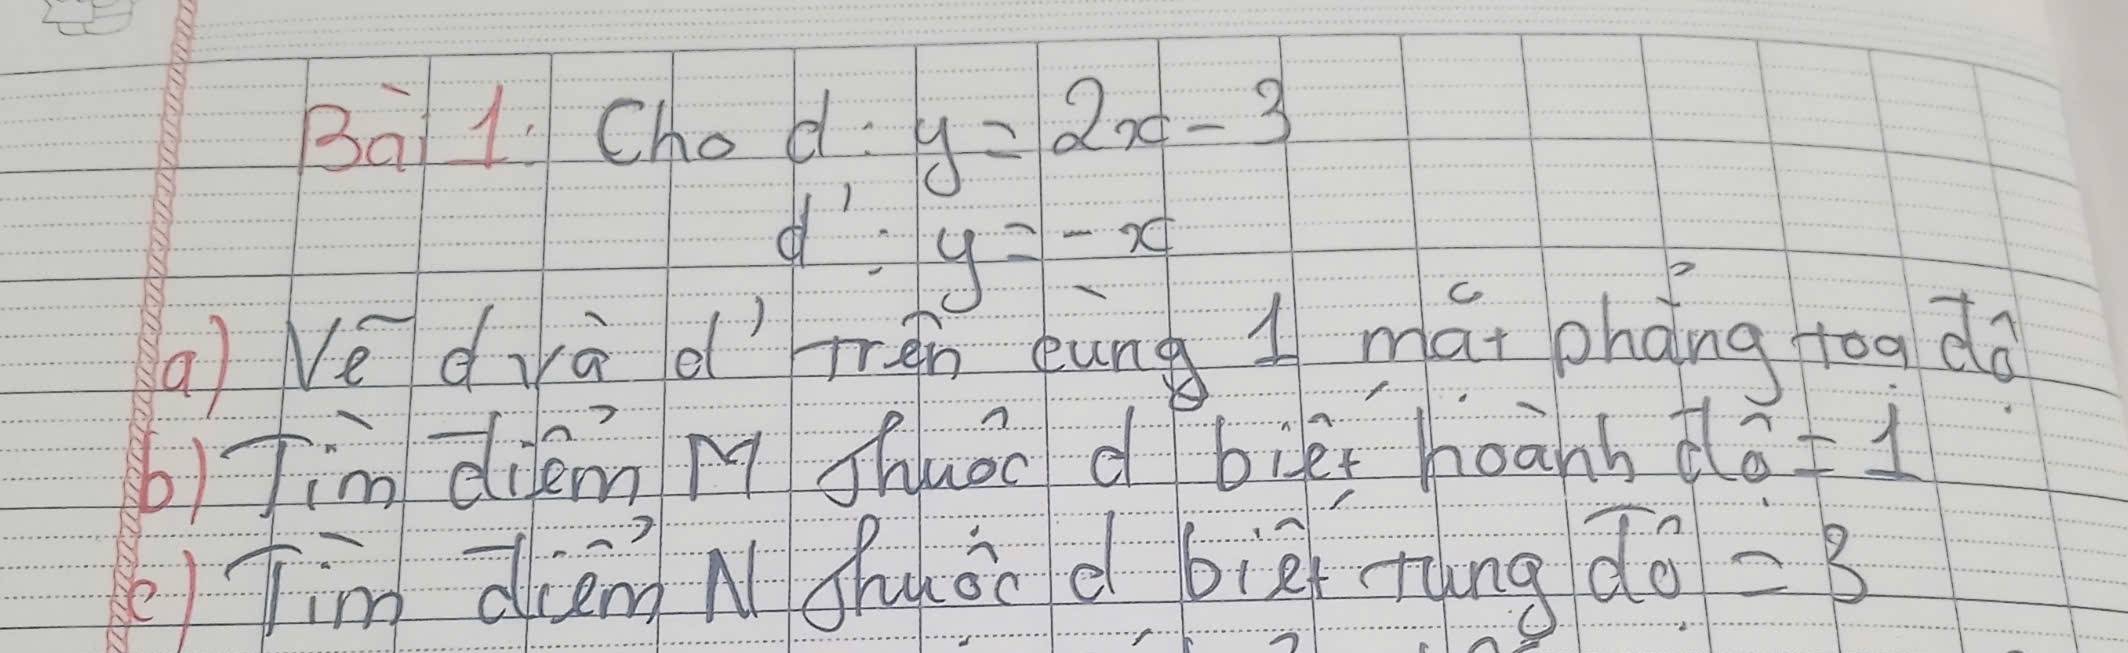 Bài 1: Cho d: y = 2x - 3
d': y = -x
a) Vẽ d và d' trên cùng 1 mặt phẳng toạ độ
b) Tìm điểm M thuộc d biết hoành độ = 1
c) Tìm điểm N thuộc d biết tung độ = 3